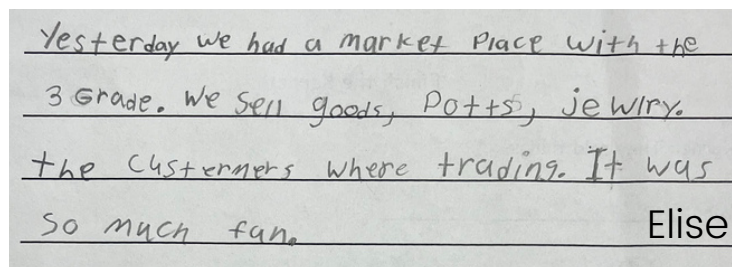 Yesterday we had a market Place with the
3 Grade. We Sell goods, Potts, jewlry.
the Custermers where trading. It was
So much fun.
Elise